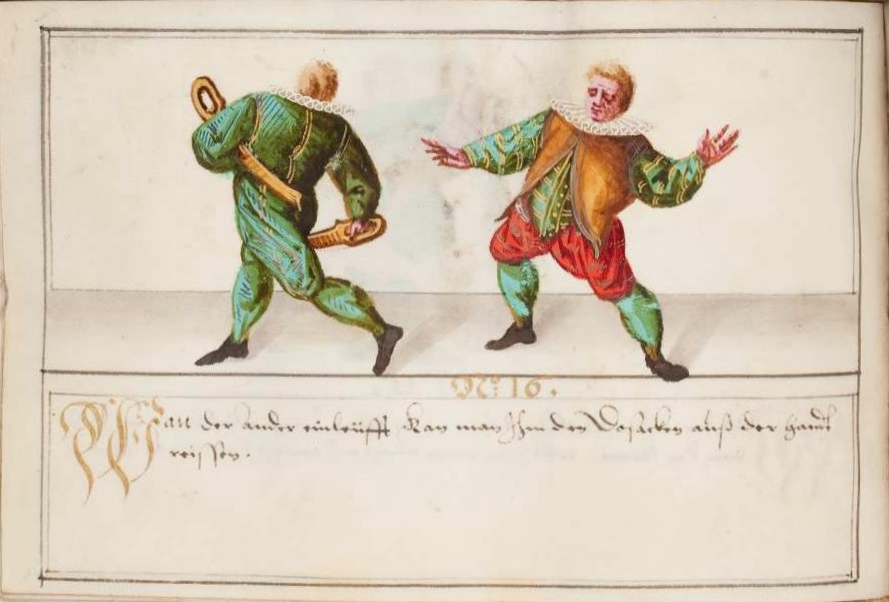 No: 16.
Wan der Ander einleüfft, Kan man Ihm den Dusacken auß der handt
reissen.